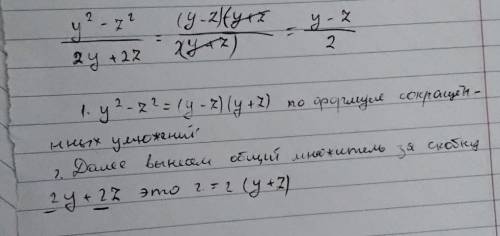 y² - z² / 2y + 2z = (y - z)(y + z / 2(y + z) = y - z / 2
1. y² - z² = (y - z)(y + z) по формуле сокращён-
нных умножений
, Далее вынесем общий множитель за скобку
2y + 2z это 2 = 2 (y + z)